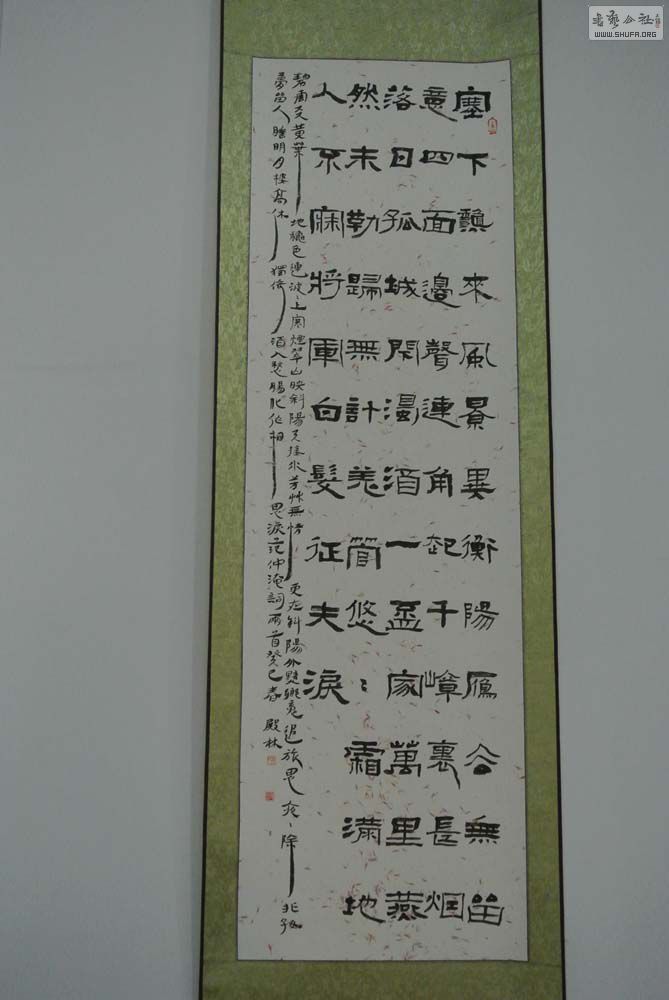 書藝公社
WWW.SHUFA.ORG
塞下龝來風景異衡陽鴈去無留
意四面邊聲連角起千嶂裏長烟
落日孤城閉濁酒一盃家萬里燕
然未勒歸無計羌管悠〻霜滿地
人不寐將軍白髮征夫淚
碧雲天黃葉地穐色連波〻上寒煙翠山映斜陽天接水芳艸無情更在斜陽外黯鄉魂追旅思夜〻除非好
夢留人睡明月樓高休獨倚酒入愁腸化作相思淚范仲淹詞兩首癸巳春殿林